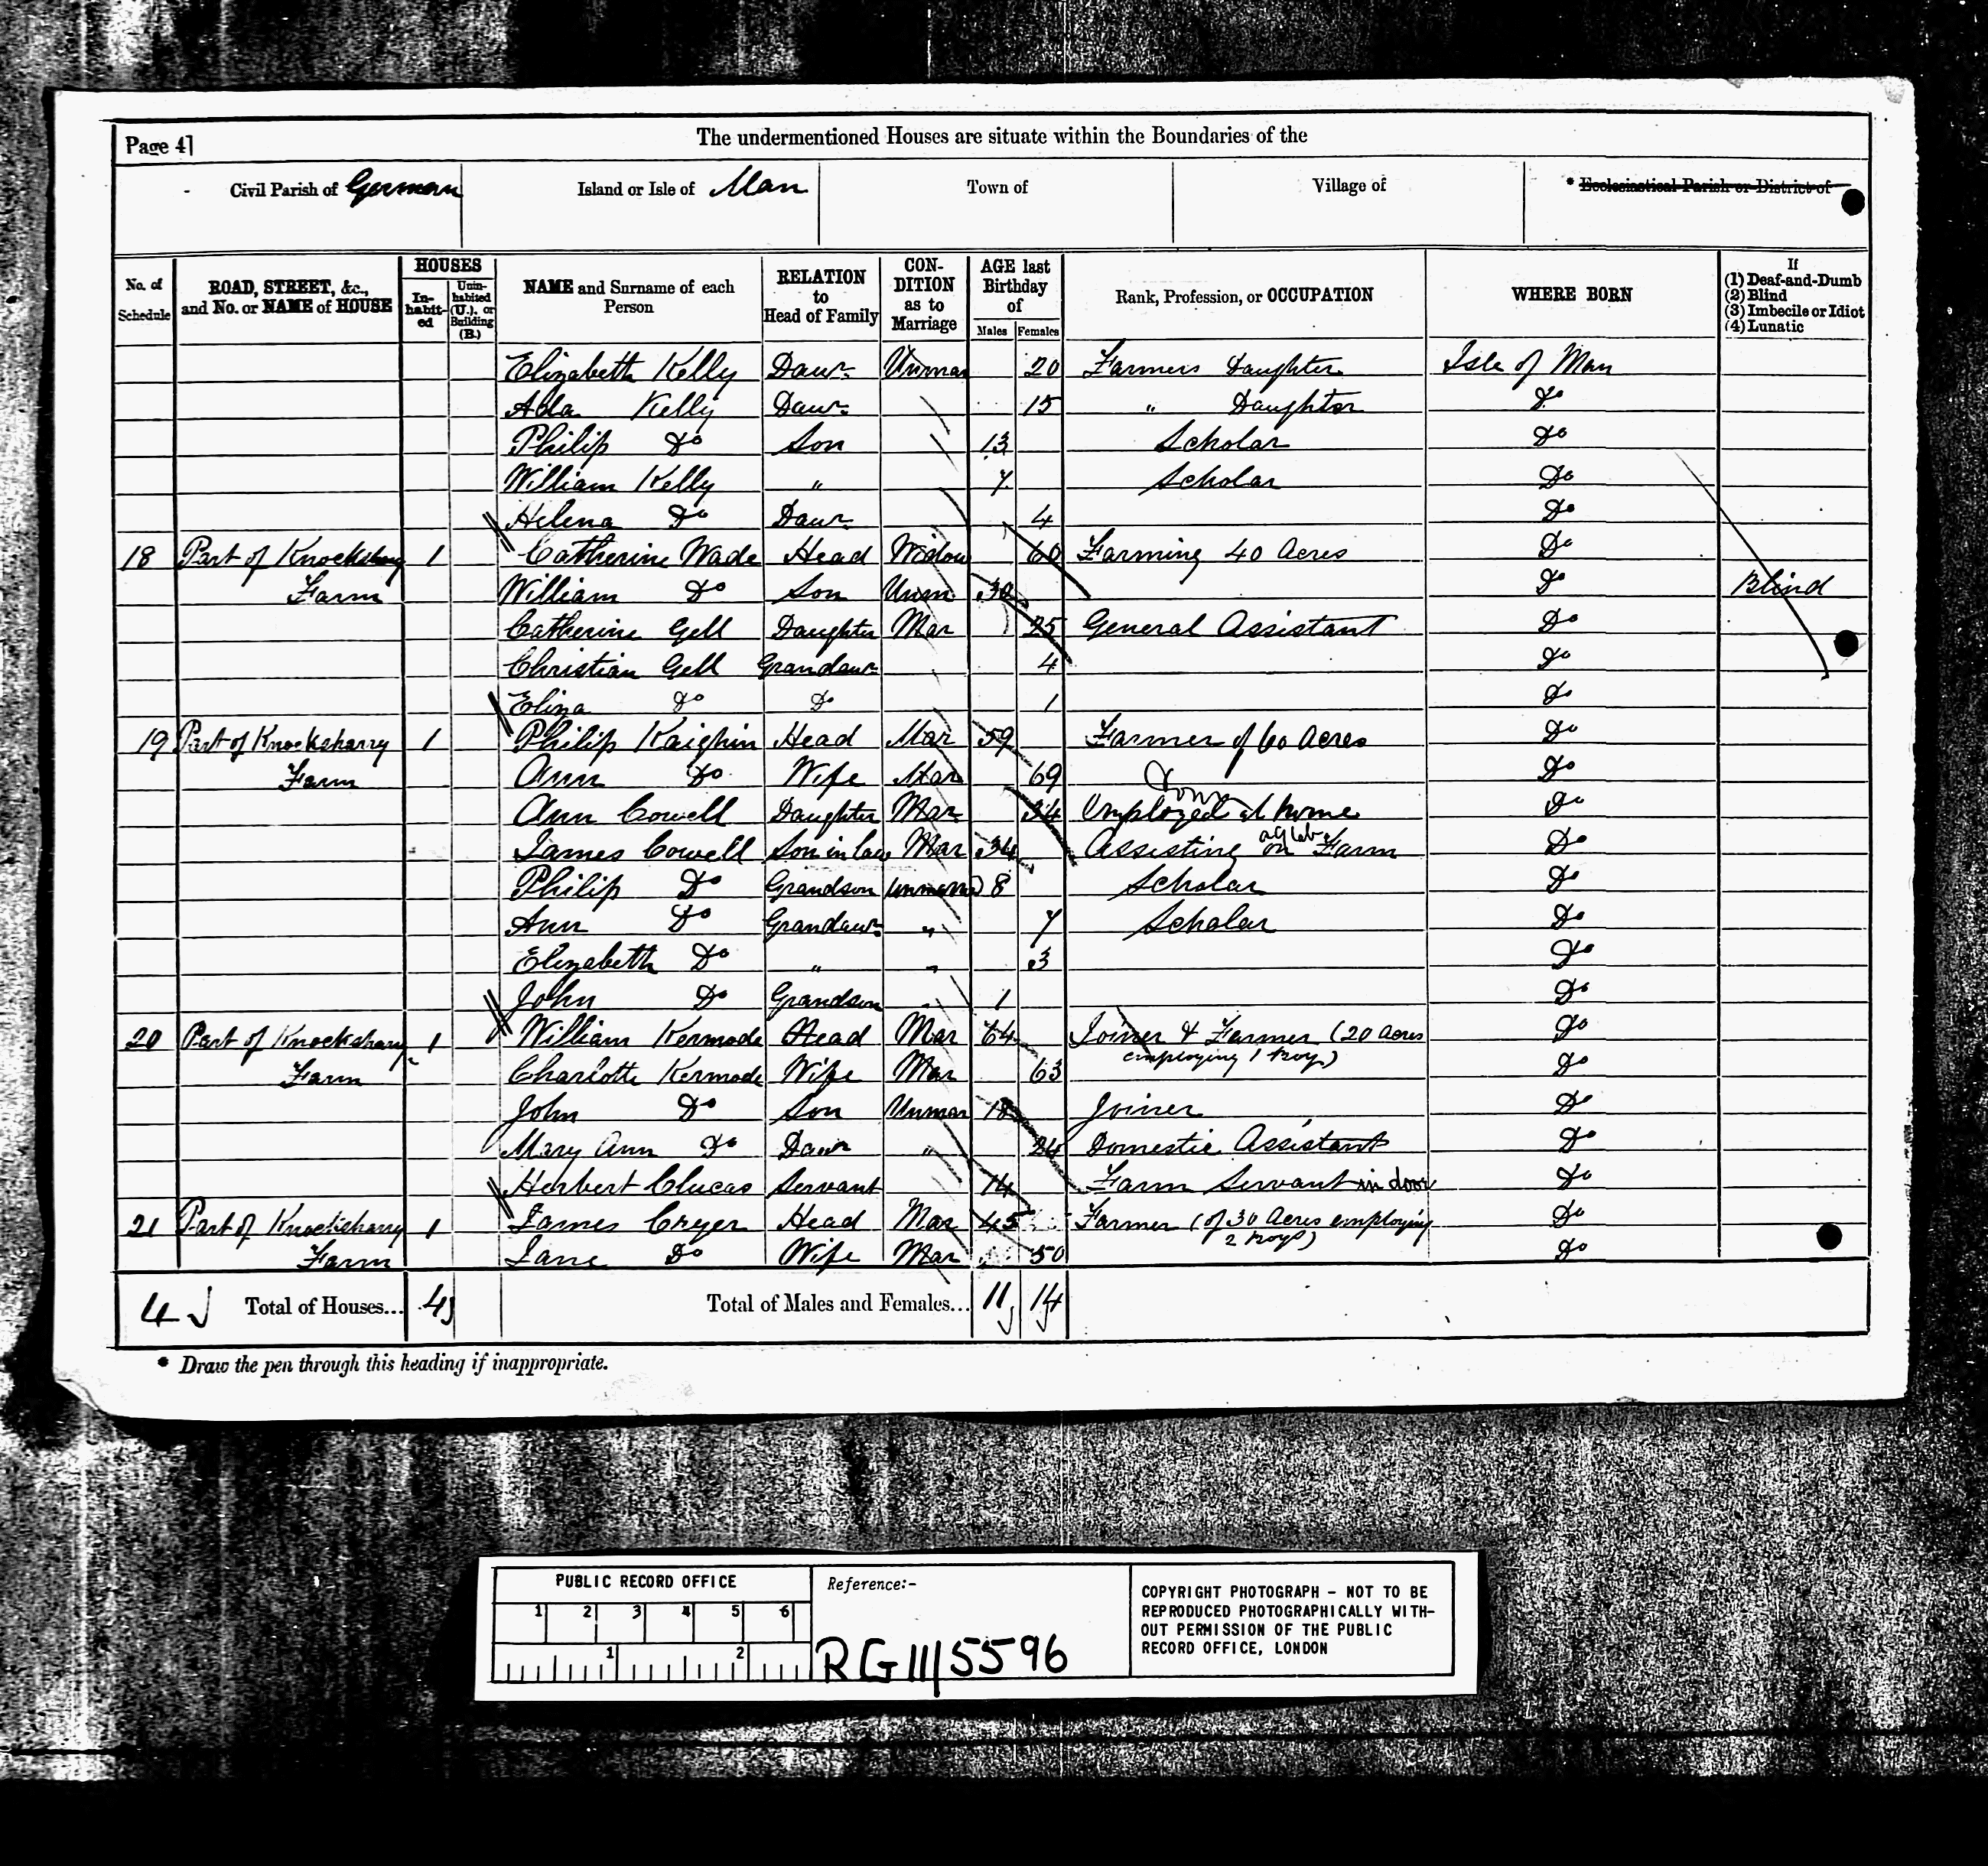 Page 4]
The undermentioned Houses are situate within the Boundaries of the
Civil Parish of German
Island or Isle of Man
Town of
Village of
* Ecclesiastical Parish or District of
No. of Schedule
ROAD, STREET, &c., and No. or NAME of HOUSE
HOUSES
In-habit-ed
Unin-habited (U.), or Building (B.)
NAME and Surname of each Person
RELATION to Head of Family
CON-DITION as to Marriage
AGE last Birthday of
Males Females
Rank, Profession, or OCCUPATION
WHERE BORN
If
(1) Deaf-and-Dumb
(2) Blind
(3) Imbecile or Idiot
(4) Lunatic
Elizabeth Kelly Daur. Unmar 20 Farmers Daughter Isle of Man
Ada Kelly Daur. 15 " Daughter Do
Philip Do Son 13 Scholar Do
William Kelly " 7 Scholar Do
Helena Do Daur 4 Do
18 Part of Knocksharry 1 Catherine Wade Head Widow 60 Farming 40 Acres Do
Farm William Do Son Unm 30 Do Blind
Catherine Gell Daughter Mar 25 General Assistant Do
Christian Gell Grandaur 4 Do
Eliza Do Do 1 Do
19 Part of Knocksharry 1 Philip Kaighin Head Mar 59 Farmer of 60 Acres Do
Farm Ann Do Wife Mar 69 Do
Ann Cowell Daughter Mar 34 Employed at home Do
James Cowell Son in law Mar 34 Assisting on Farm Do
ag lab
Philip Do Grandson Unmarrd 8 Scholar Do
Ann Do Grandaur " 7 Scholar Do
Elizabeth Do " " 3 Do
John Do Grandson " 1 Do
20 Part of Knocksharry 1 William Kermode Head Mar 64 Joiner & Farmer (20 acres Do
employing 1 boy)
Farm Charlotte Kermode Wife Mar 63 Do
John Do Son Unmar 18 Joiner Do
Mary Ann Do Daur " 24 Domestic Assistant Do
Herbert Clucas Servant 14 Farm Servant in door Do
21 Part of Knocksharry 1 James Cryer Head Mar 45 Farmer (of 30 Acres employing Do
2 boys)
Farm Jane Do Wife Mar 50 Do
4 Total of Houses... 4 Total of Males and Females... 11 14
* Draw the pen through this heading if inappropriate.
PUBLIC RECORD OFFICE
1 2 3 4 5 6
1 2
Reference:-
RG 11/5596
COPYRIGHT PHOTOGRAPH - NOT TO BE
REPRODUCED PHOTOGRAPHICALLY WITH-
OUT PERMISSION OF THE PUBLIC
RECORD OFFICE, LONDON